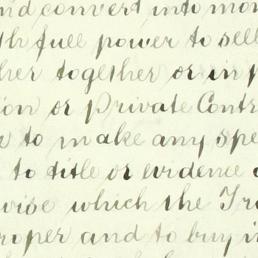 and convert into mon
th full power to sell
her together or in p
ion or Private Contr
r to make any spe
to title or evidence o
wise which the Tru
roper and to buy in